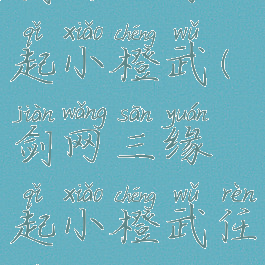 qǐ xiǎo chéng wǔ
起小橙武(
jiàn wǎng sān yuán
剑网三缘
qǐ xiǎo chéng wǔ rèn
起小橙武任